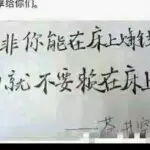 享给你们。
非你能在床上赚钱
就不要赖在床上
——苍井